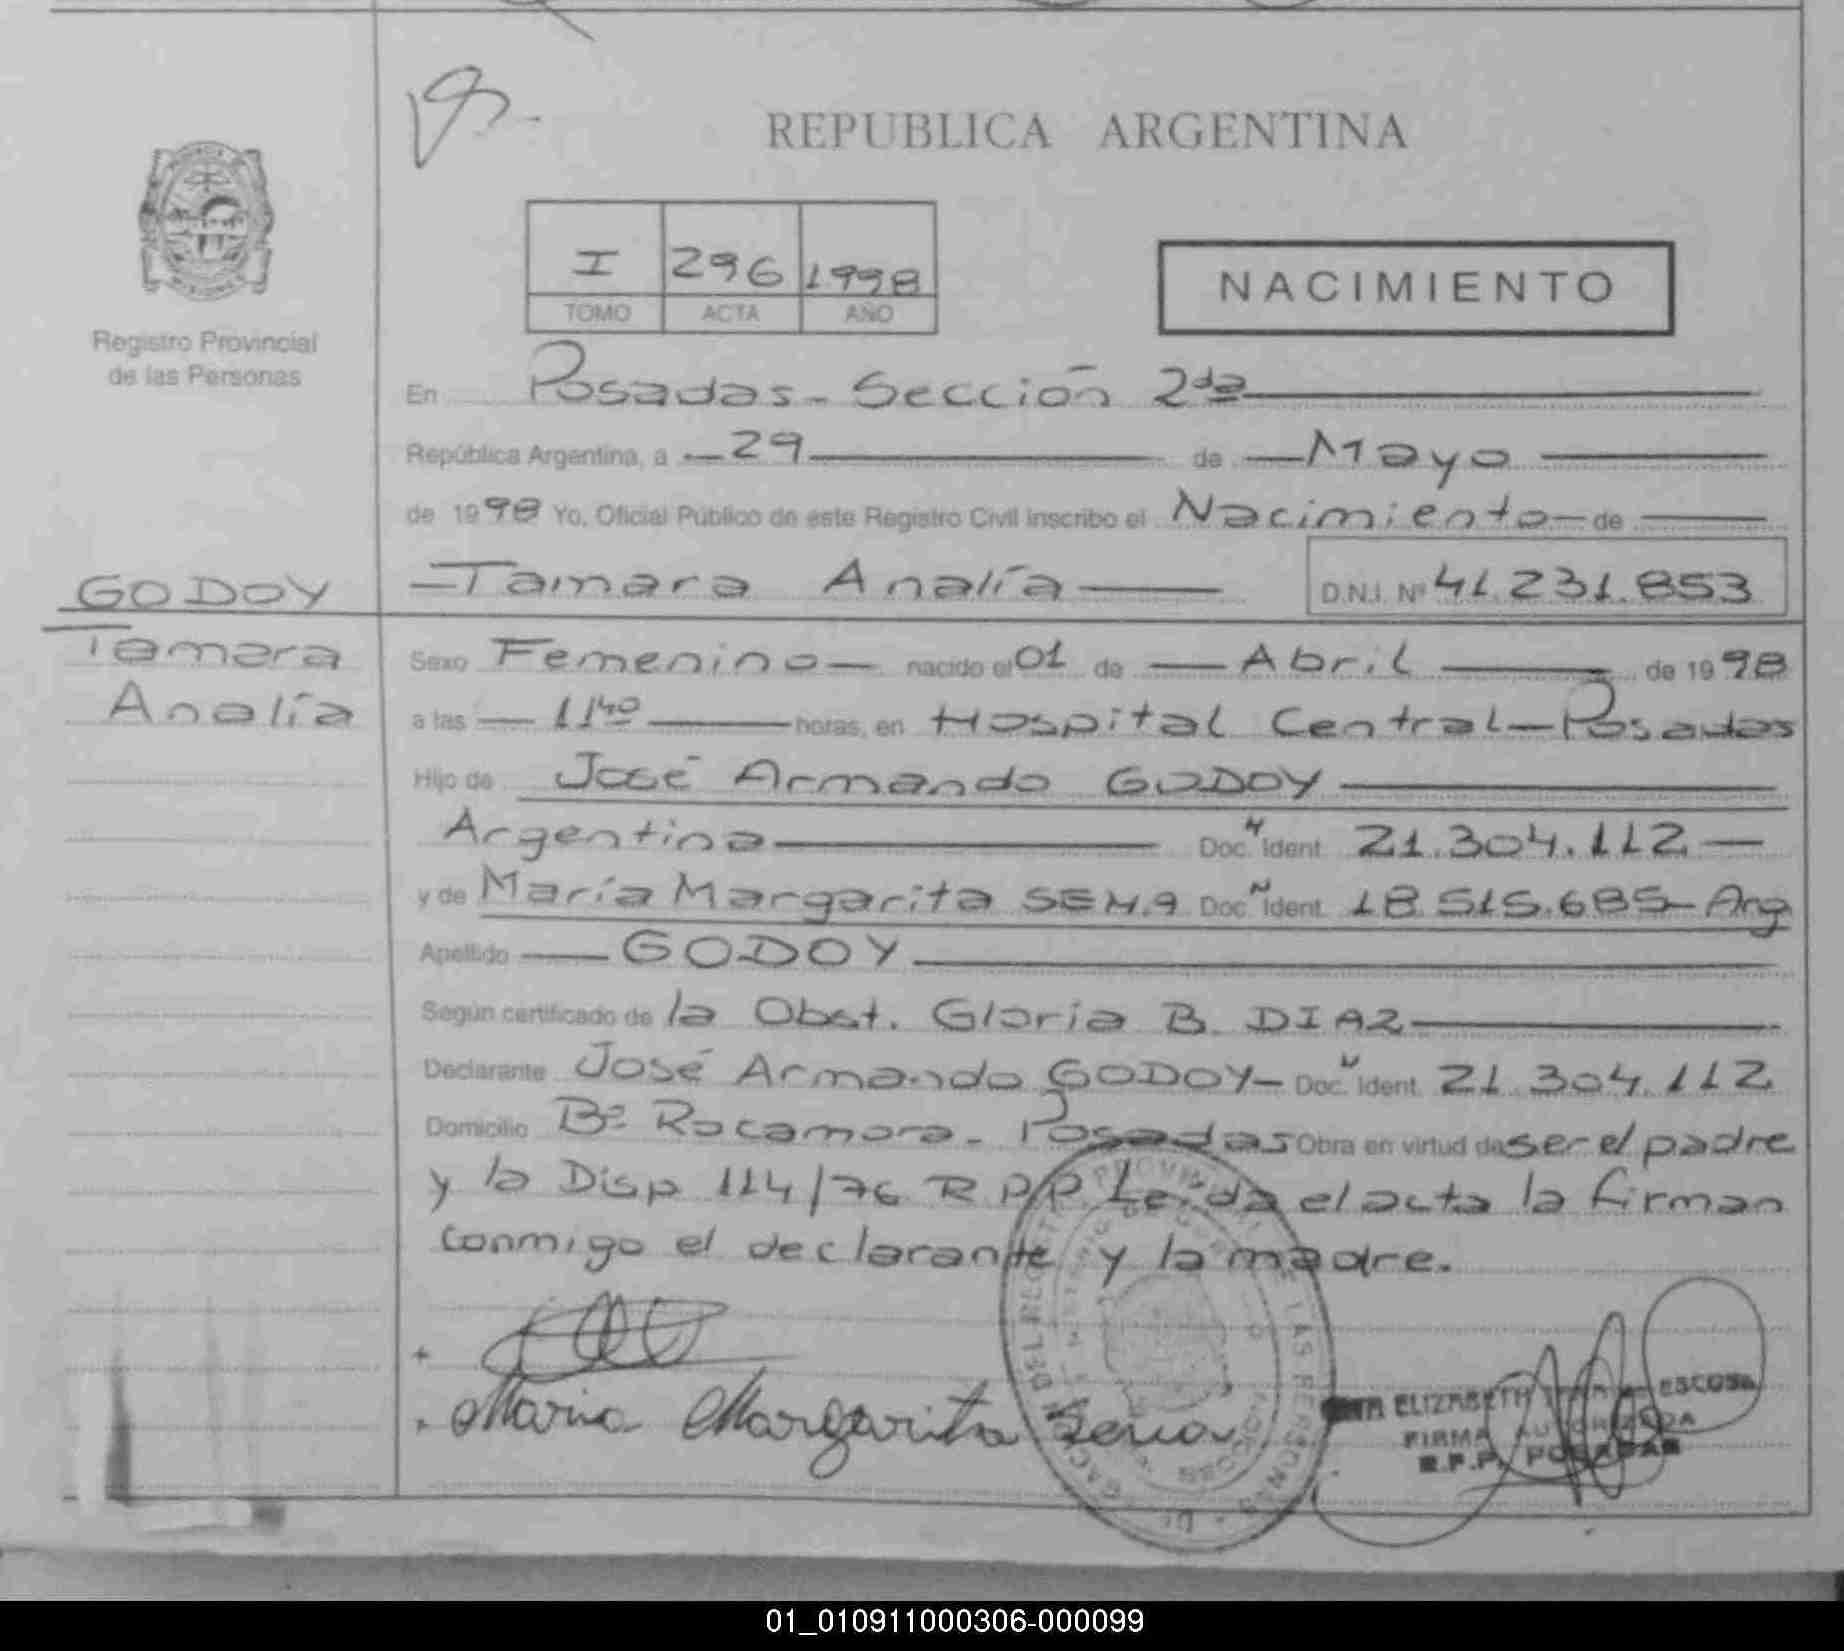 REPUBLICA ARGENTINA
I 296 1998
TOMO ACTA AÑO
NACIMIENTO
Registro Provincial
de las Personas
En Posadas - Sección 2da
República Argentina, a 29 de Mayo
de 1998 Yo, Oficial Público de este Registro Civil inscribo el Nacimiento de
GODOY
Tamara
Analía
Tamara Analía D.N.I. Nº 41.231.853
Sexo Femenino nacido el 01 de Abril de 1998
a las 11 40 horas, en Hospital Central - Posadas
Hijo de José Armando GODOY
Argentina Doc. Ident. 21.304.112
y de María Margarita SENA Doc. Ident. 18.515.685 - Arg
Apellido GODOY
Según certificado de la Obst. Gloria B. DIAZ
Declarante José Armando GODOY - Doc. Ident. 21.304.112
Domicilio Bº Rocamora - Posadas Obra en virtud de ser el padre
y la Disp 114/76 R P P Leida el acta la firman
conmigo el declarante y la madre.
Maria Margarita Sena
ELIZABETH ESCOBA
FIRMA AUTORIZADA
R.P.P. POSADAS
01_010911000306-000099